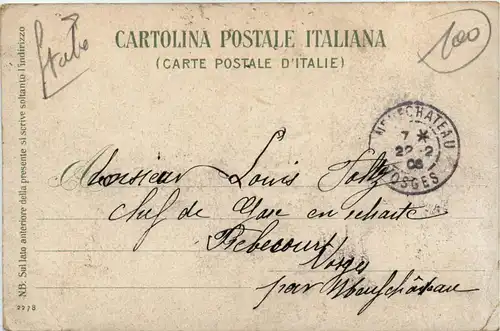 Italie
100
CARTOLINA POSTALE ITALIANA
(CARTE POSTALE D'ITALIE)
N.B. Sul lato anteriore della presente si scrive soltanto l'indirizzo
NEUFCHATEAU
7 *
22 - 2
08
VOSGES
Monsieur Louis
chef de Gare en retraite
Rebecourt
Vosges
par Neufchâteau
2278